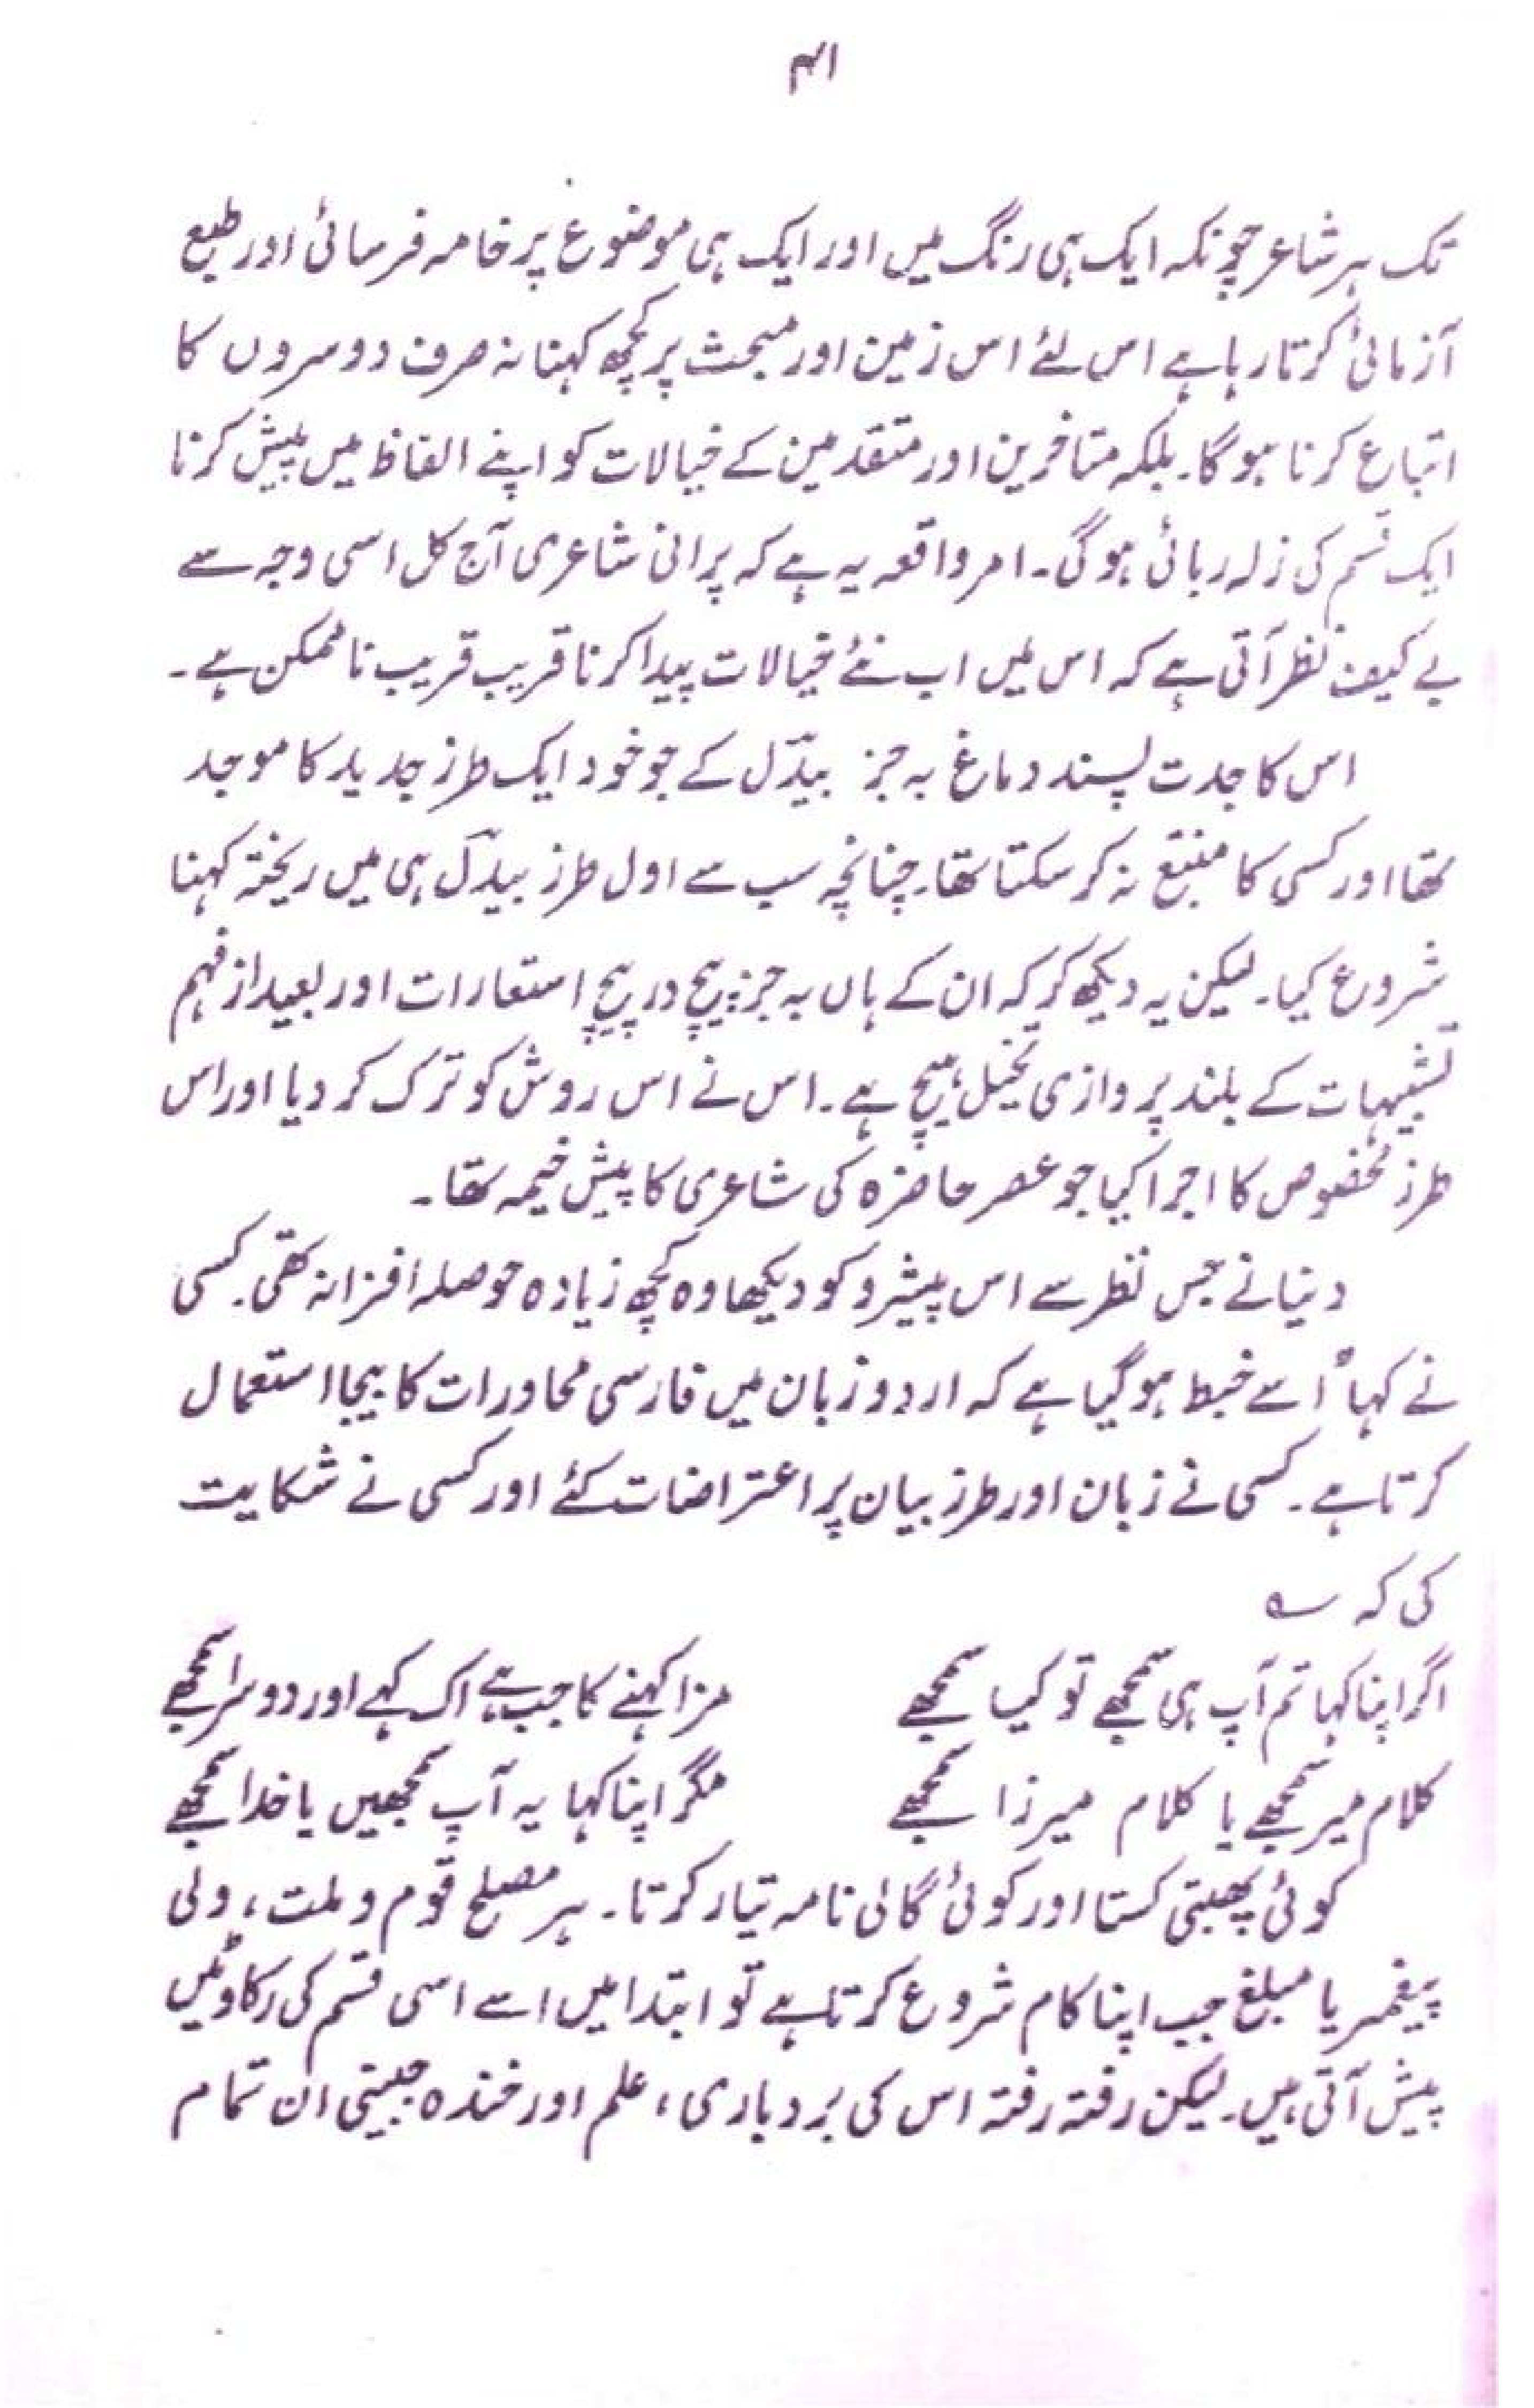 ۴۱
تک ہر شاعر چونکہ ایک ہی رنگ میں اور ایک ہی موضوع پر خامہ فرسائی اور طبع
آزمائی کرتا رہا ہے اس لئے اس زمین اور مبحث پر کچھ کہنا نہ صرف دوسروں کا
اتباع کرنا ہوگا۔ بلکہ متاخرین اور متقدمین کے خیالات کو اپنے الفاظ میں پیش کرنا
ایک قسم کی زلہ ربائی ہوگی۔ امر واقعہ یہ ہے کہ پرانی شاعری آج کل اسی وجہ سے
بے کیف نظر آتی ہے کہ اس میں اب نئے خیالات پیدا کرنا قریب قریب ناممکن ہے۔
اس کا جدت پسند دماغ بہ جز بیدؔل کے جو خود ایک طرز جدید کا موجد
تھا اور کسی کا متبع نہ کرسکتا تھا۔ چنانچہ سب سے اول طرز بیدؔل ہی میں ریختہ کہنا
شروع کیا۔ لیکن یہ دیکھ کر کہ ان کے ہاں بہ جز پیچ در پیچ استعارات اور بعید از فہم
تشبیہات کے بلند پروازی تخیل ہیچ ہے۔ اس نے اس روش کو ترک کر دیا اور اس
طرز مخصوص کا اجرا کیا جو عصر حاضرہ کی شاعری کا پیش خیمہ تھا۔
دنیا نے جس نظر سے اس پیشرو کو دیکھا وہ کچھ زیادہ حوصلہ افزا نہ تھی۔ کسی
نے کہا "اُسے خبط ہوگیا ہے کہ اردو زبان میں فارسی محاورات کا بیجا استعمال
کرتا ہے۔ کسی نے زبان اور طرز بیان پر اعتراضات کئے اور کسی نے شکایت
کی کہ ؎
اگر اپنا کہا تم آپ ہی سمجھے تو کیا سمجھے مزا کہنے کا جب ہے اک کہے اور دوسرا سمجھے
کلام میر سمجھے یا کلام میرزا سمجھے مگر اپنا کہا یہ آپ سمجھیں یا خدا سمجھے
کوئی پھبتی کستا اور کوئی گالی نامہ تیار کرتا۔ ہر مصلح قوم و ملت، ولی
پیغمبر یا مبلغ جب اپنا کام شروع کرتا ہے تو ابتدا میں اسے اسی قسم کی رکاوٹیں
پیش آتی ہیں۔ لیکن رفتہ رفتہ اس کی بردباری، علم اور خندہ جبینی ان تمام